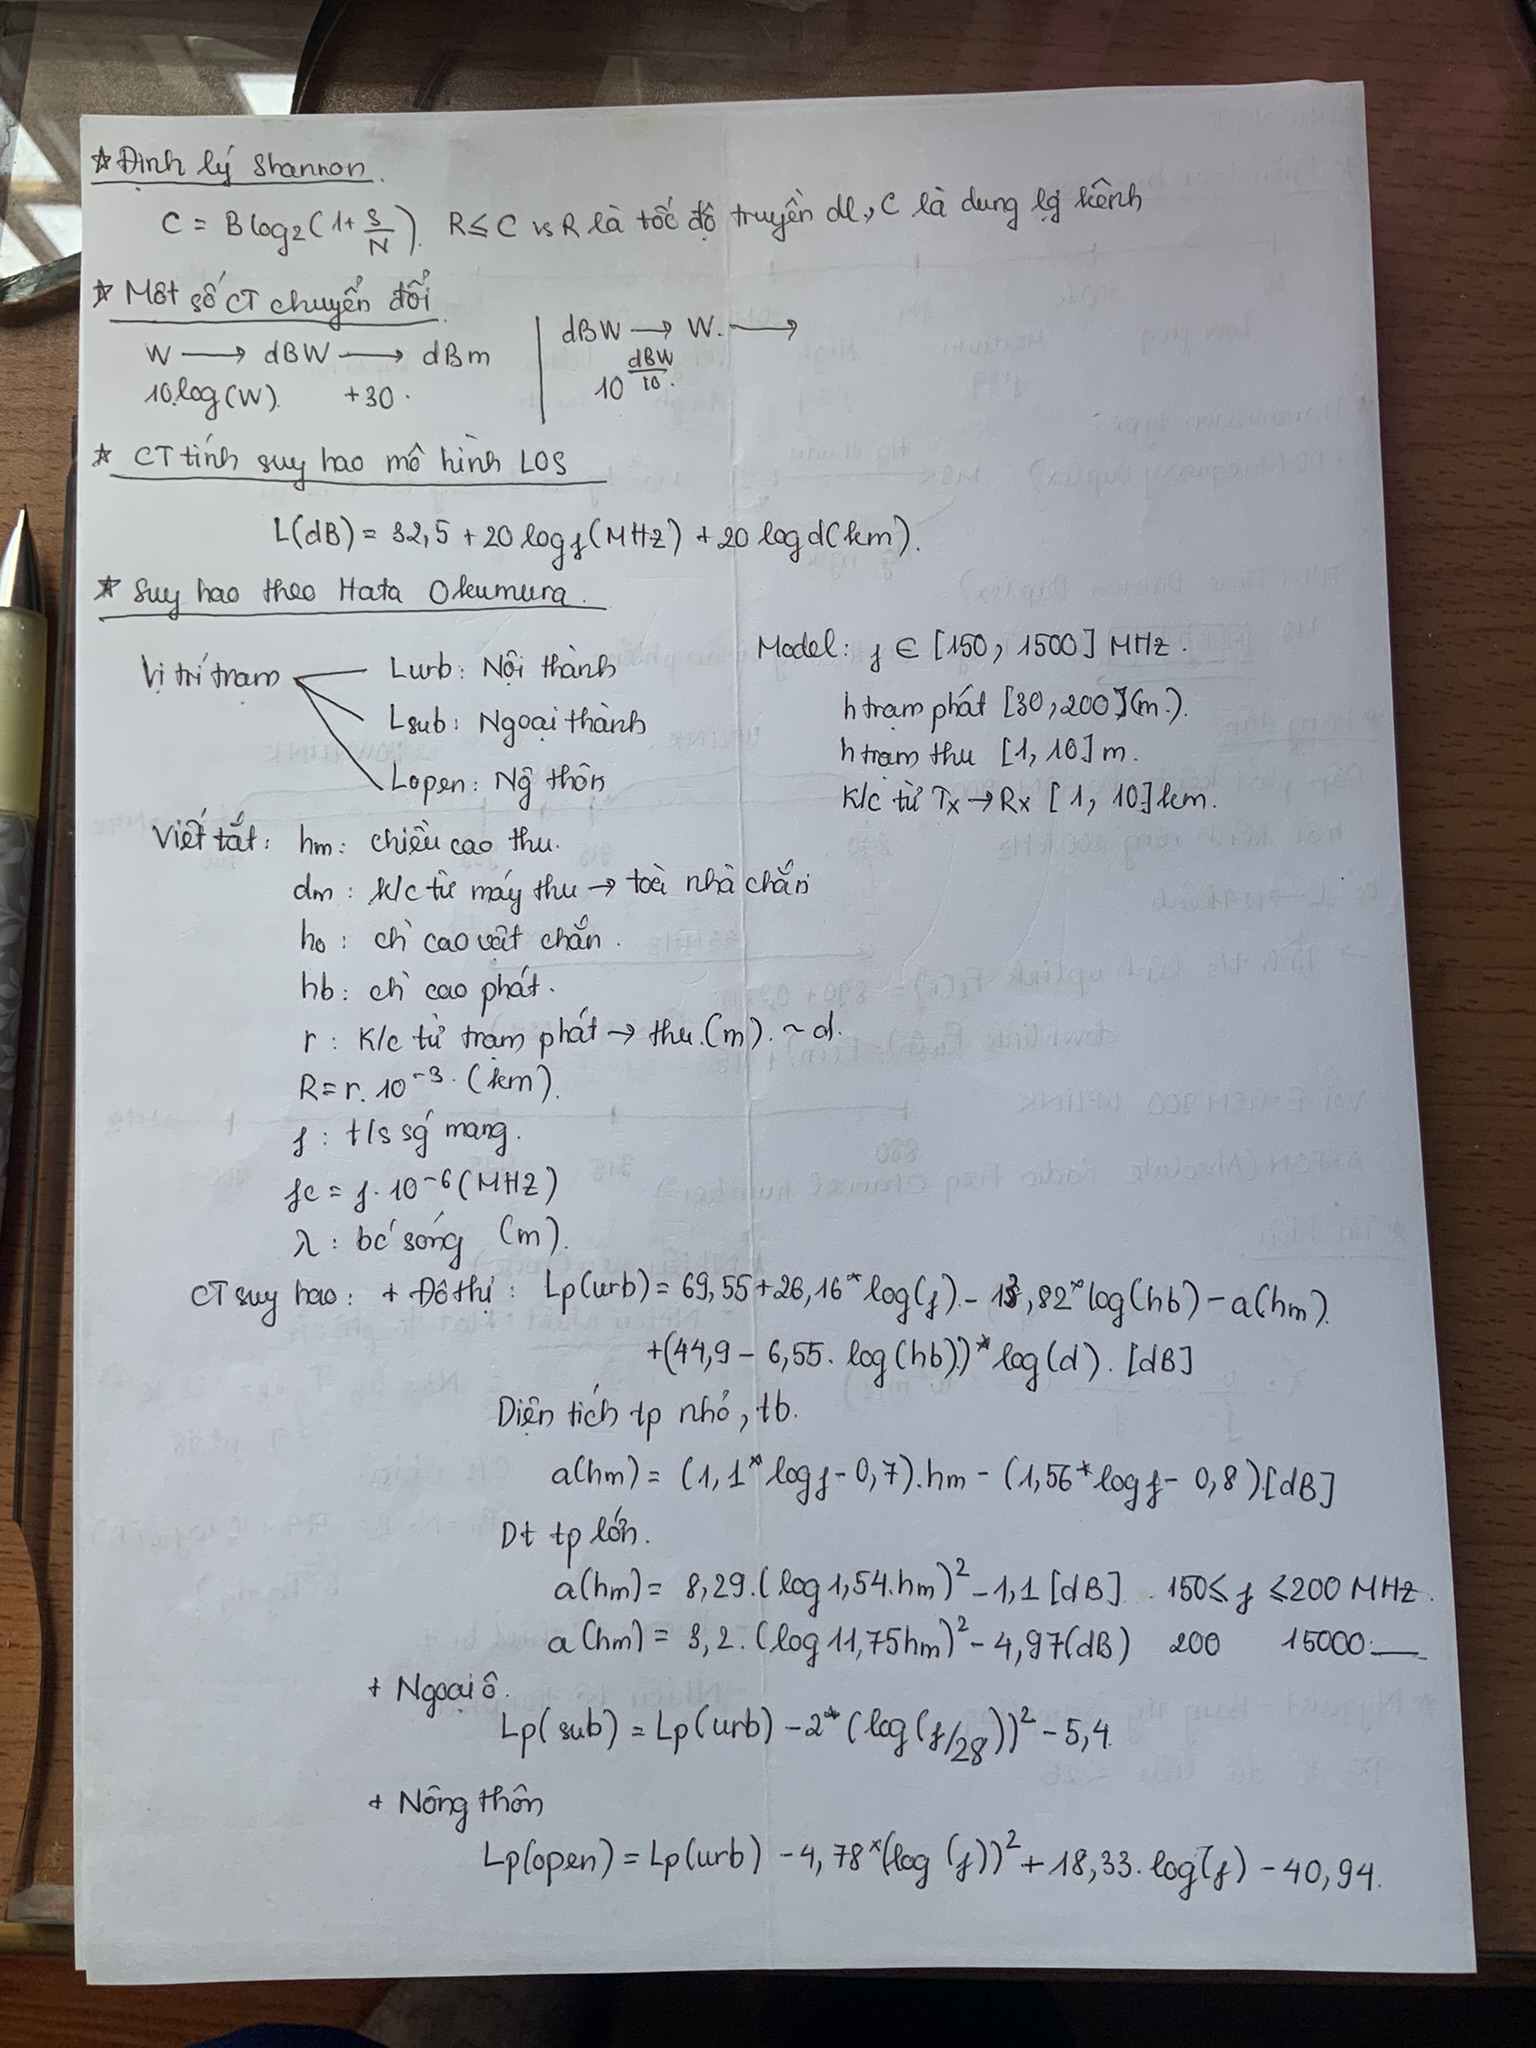 ☆ Định lý Shannon.
C = B log₂(1+ S/N). R ≤ C vs R là tốc độ truyền dl, C là dung lg kênh
☆ Một số CT chuyển đổi.
W → dBW → dBm | dBW → W. →
10.log(W). +30. | 10^(dBW/10).
☆ CT tính suy hao mô hình LOS
L(dB) = 32,5 + 20 log f(MHz) + 20 log d(km).
☆ Suy hao theo Hata Okumura.
Vị trí trạm
Lurb: Nội thành
Lsub: Ngoại thành
Lopen: Ng thôn
Model: f ∈ [150, 1500] MHz.
h trạm phát [30, 200] (m.).
h trạm thu [1, 10] m.
K/c từ Tx → Rx [1, 10] km.
Viết tắt: hm: chiều cao thu.
dm: k/c từ máy thu → toà nhà chắn
ho: ch cao vật chắn.
hb: ch cao phát.
r: K/c từ trạm phát → thu.(m). ~ d.
R = r. 10⁻³. (km).
f: t/s sg mang.
fc = f. 10⁻⁶ (MHz)
λ: bc sóng (m).
CT suy hao: + Đô thị: Lp(urb) = 69,55 + 26,16 * log(f) - 13,82 * log(hb) - a(hm).
+(44,9 - 6,55. log(hb)) * log(d). [dB]
Diện tích tp nhỏ, tb.
a(hm) = (1,1 * log f - 0,7). hm - (1,56 * log f - 0,8).[dB]
Dt tp lớn.
a(hm) = 8,29.(log 1,54.hm)² - 1,1 [dB] 150 ≤ f ≤ 200 MHz.
a(hm) = 3,2.(log 11,75hm)² - 4,97(dB) 200 15000
+ Ngoại ô.
Lp(sub) = Lp(urb) - 2 * (log(f/28))² - 5,4.
+ Nông thôn
Lp(open) = Lp(urb) - 4,78 * (log (f))² + 18,33. log(f) - 40,94.